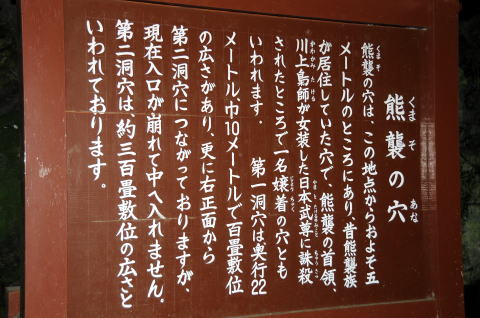 熊襲の穴
くま そ あな
くま そ
熊襲の穴は、この地点からおよそ五
メートルのところにあり、昔熊襲族
が居住していた穴で、熊襲の首領、
川上梟師が女装した日本武尊に誅殺
かわかみ たける
されたところで一名嬢着の穴とも
いわれます。 第一洞穴は奥行22
メートル、巾10メートルで百畳敷位
の広さがあり、更に右正面から
第二洞穴につながっておりますが、
現在入口が崩れて中へ入れません。
第二洞穴は、約三百畳敷位の広さと
いわれております。